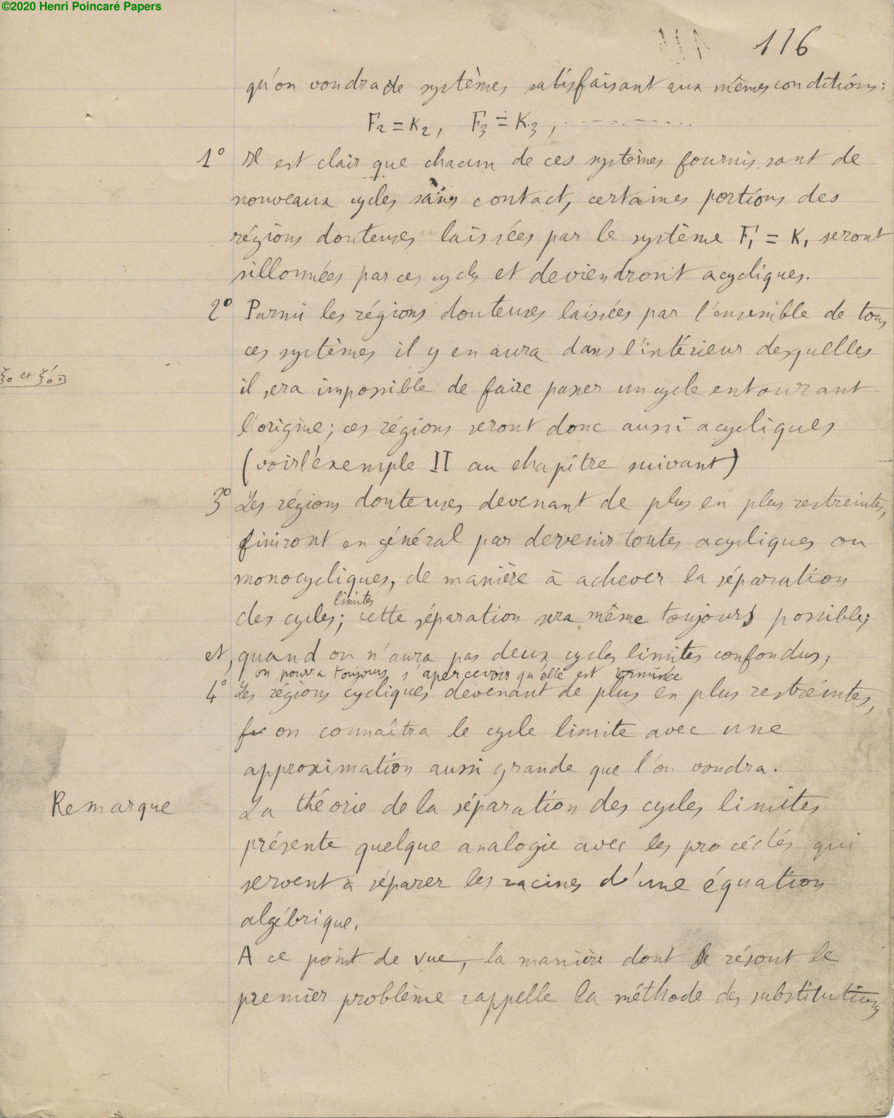 ©2020 Henri Poincaré Papers
116
qu'on voudra de systèmes satisfaisant aux mêmes conditions:
F2 = K2, F3 = K3, ..........
1° Il est clair que chacun de ces systèmes fournissant de
nouveaux cycles sans contact, certaines portions des
régions douteuses laissées par le système F1 = K1 seront
sillonnées par ces cycles et deviendront acycliques.
2° Parmi les régions douteuses laissées par l'ensemble de tous
ces systèmes il y en aura dans l'intérieur desquelles
ξ0 et ξ'0
il sera impossible de faire passer un cycle entourant
l'origine; ces régions seront donc aussi acycliques
(voir l'exemple II au chapitre suivant)
3° Les régions douteuses devenant de plus en plus restreintes,
finiront en général par devenir toutes acycliques ou
monocycliques, de manière à achever la séparation
des cycles limites; cette séparation sera même toujours possible;
et, quand on n'aura pas deux cycles limites confondus,
on pourra toujours s'apercevoir qu'elle est terminée
4° Les régions cycliques devenant de plus en plus restreintes,
on connaîtra le cycle limite avec une
approximation aussi grande que l'on voudra.
Remarque
La théorie de la séparation des cycles limites
présente quelque analogie avec les procédés qui
servent à séparer les racines d'une équation
algébrique.
A ce point de vue, la manière dont se résout le
premier problème rappelle la méthode des substitutions